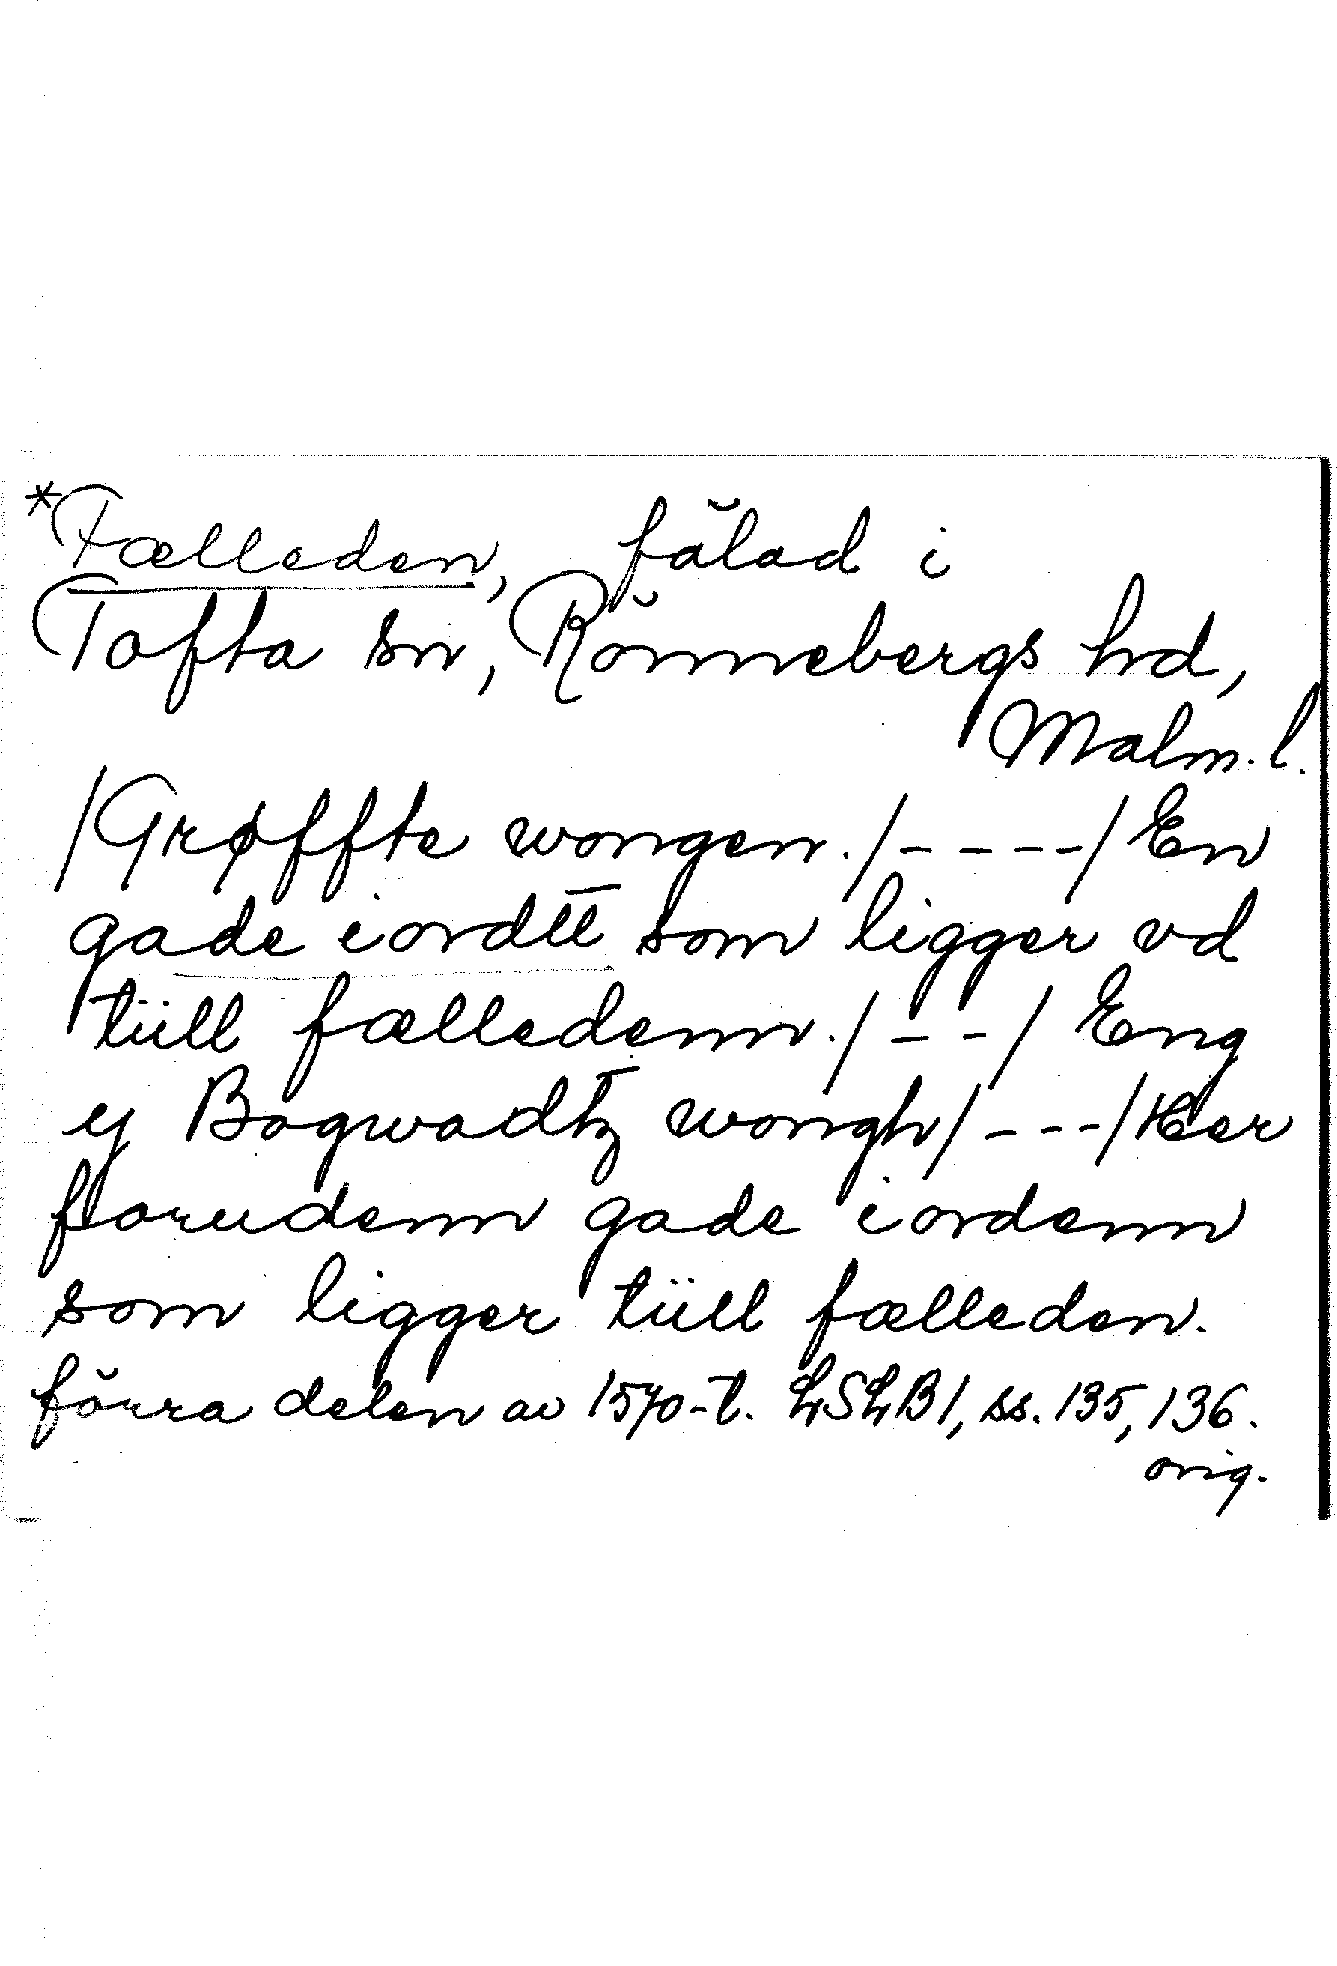 *Fælleden, fälad i
Tofta sn, Rönnebergs hd,
Malm. l.
/Grøffte wongen./----/En
gade iordtt som ligger vd
tüll fælledenn./--/ Eng
ej Bogwadtz wongh/---/Her
forudenn gade iordenn
som ligger tüll fælleden.
förra delen av 1570-t. LSLB1, ss. 135, 136.
orig.